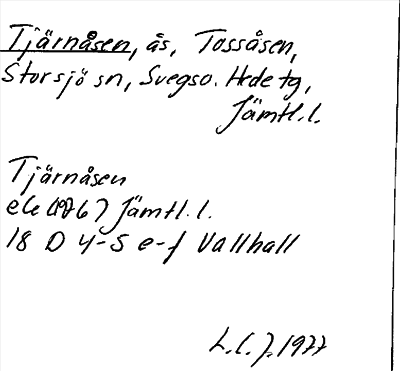 Tjärnåsen, ås, Tossåsen,
Storsjö sn, Svegs o. Hede tg,
Jämtl.l.
Tjärnåsen
ek (1976) Jämtl.l.
18 D 4-5 e-f Vallhall
L.C.J. 1977